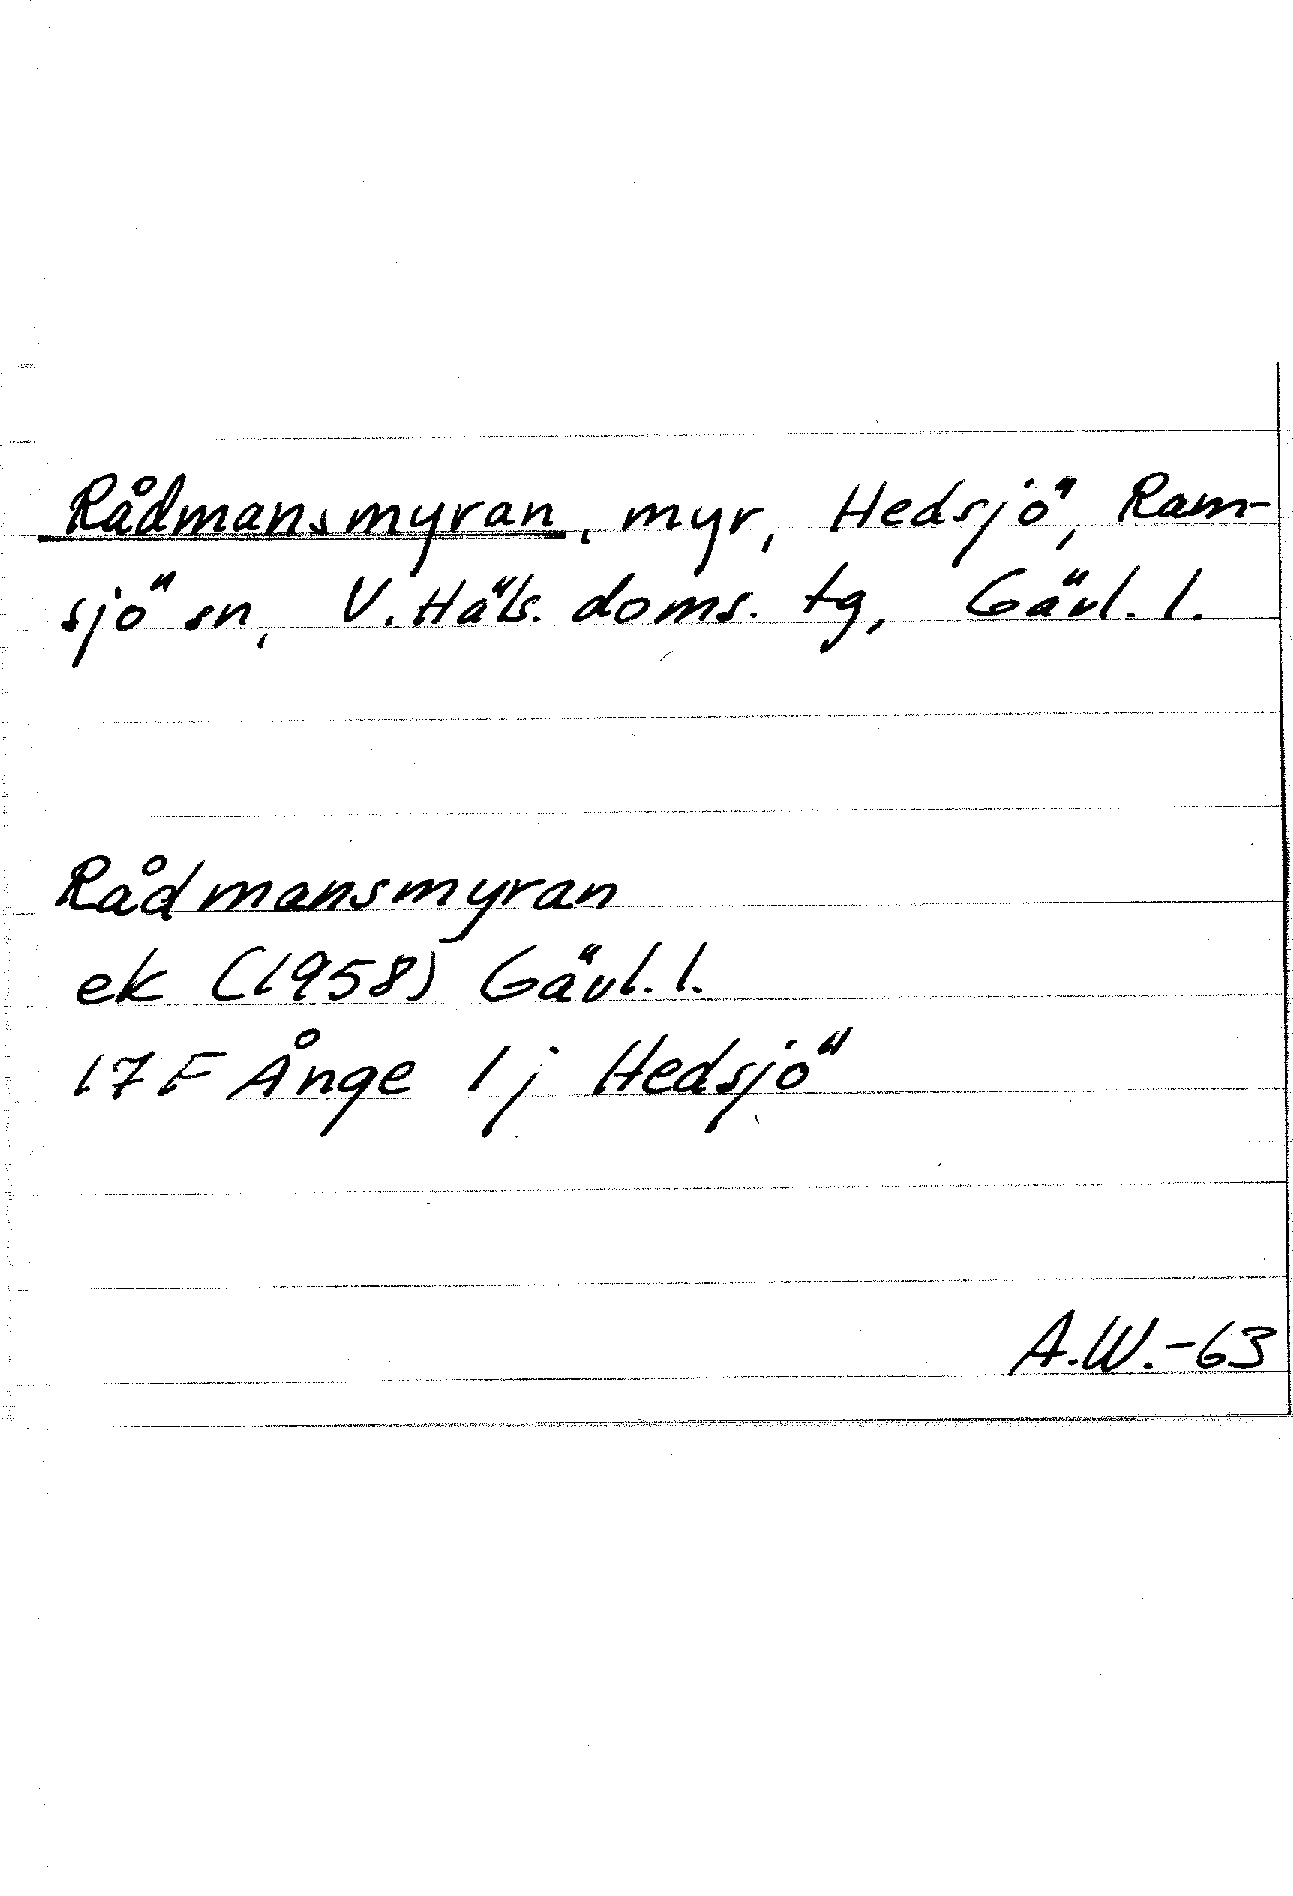 Rådmansmyran, myr, Hedsjö, Ram-
sjö sn, V. Häls. doms. tg, Gävl. l.
Rådmansmyran
ek (1958) Gävl. l.
17F Ånge 1j Hedsjö
A.W.-63